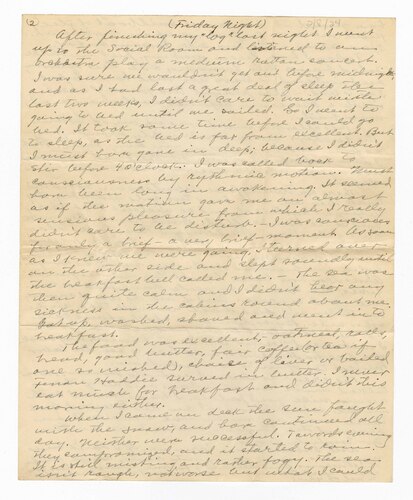 2 (Friday Night) 2/2/29
After finishing my "log" last night I went
up to the Social Room and listened to an
orchestra play a medium rattan concert.
I was sure we wouldn't get out before midnight
and as I had lost a great deal of sleep the
last two weeks, I didn't care to wait until
going to bed until we sailed. So I went to
bed. It took some time before I could go
to sleep, as the bed is far from excellent. But
I must have gone in deep, because I didn't
stir before 4 o'clock. I was called back to
consciousness by rythmic motion. Must
have been long in awakening. It seemed
as if the motion gave me an almost
sensuous pleasure from which I really
didn't care to be disturb. I was conscious
for only a brief - a very brief moment. As soon
as I knew we were going, I turned over
on the other side and slept soundly until
the breakfast bell called me. - The sea was
then quite calm and I didn't hear any
sickness in the cabins round about me.
Got up, washed, shaved and went into
breakfast.
The food was excellent, oatmeal,
bread, good butter, fair coffee (or tea if
one so wished), choice of liver or boiled
Finnan Haddie served in butter. I never
eat much for breakfast and didn't this
morning either.
When I came on deck the sun fought
with the snow, and has continued all
day. Neither were successful. Towards evening
they compromized, and it started to rain.
It is still misting and rather foggy. The sea
isn't rough, not worse but what I could